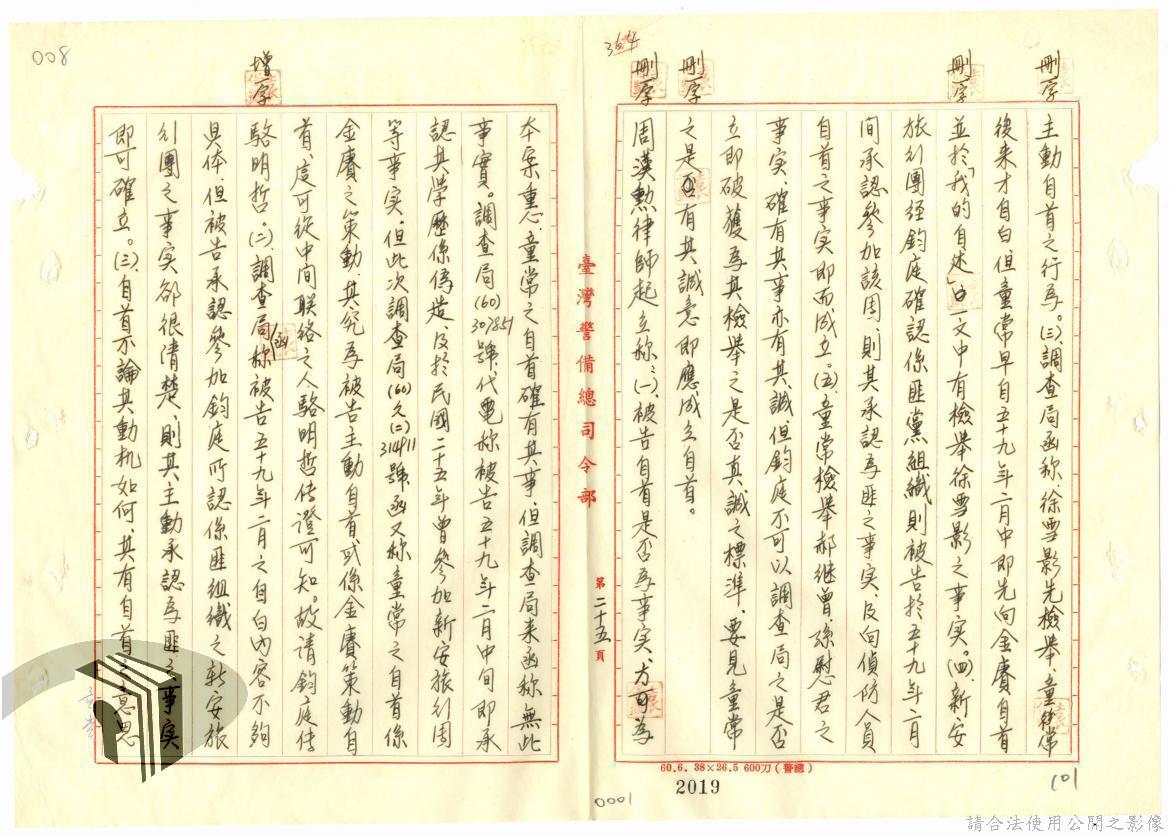 008
364
刪一字
刪一字
刪一字
刪一字
增一字
主動自首之行為。(三)調查局函称徐雪影先檢舉、童常
後来才自白、但童常早自五十九年二月中即先向金賡自首
並於「我的自述」中一文中有檢舉徐雪影之事实。(四)新安
旅行團経鈞庭確認係匪黨組織、則被告於五十九年二月
间承認參加該團、則其承認為匪之事实、及向偵防人員
自首之事实即而成立。(五)童常檢舉郝継曾、孫慰君之
事实、確有其事亦有其誠、但鈞庭不可以調查局之是否
立即破獲為其檢舉之是否真誠之標準、要見童常
之是否有其誠意即應成立自首。
周漢勲律師起立称：(一)、被告自首是否為事实、方可為
臺灣警備總司令部
第二十五頁
本案重心、童常之自首確有其事、但調查局来函称無此
事實。調查局(60)307851號代電称被告五十九年二月中间即承
認其學歷係偽造、及於民國二十五年曾參加新安旅行団
等事实、但此次調查局(60)久(二)314911號函又称童常之自首係
金賡之策動、其究為被告主動自首或係金賡策動自
首、這可從中间联絡之人駱明哲传證可知。故请鈞庭传
駱明哲。(二)、調查局函称被告五十九年二月之自白內容不夠
具体、但被告承認參加鈞庭所認係匪組織之新安旅
行團之事实卻很清楚、則其主動承認為匪之事实
即可確立。(三)、自首不論其動机如何、其有自首之意思
60.6. 38×26.5 600刀(警總)
2019
0001
101
請合法使用公開之影像